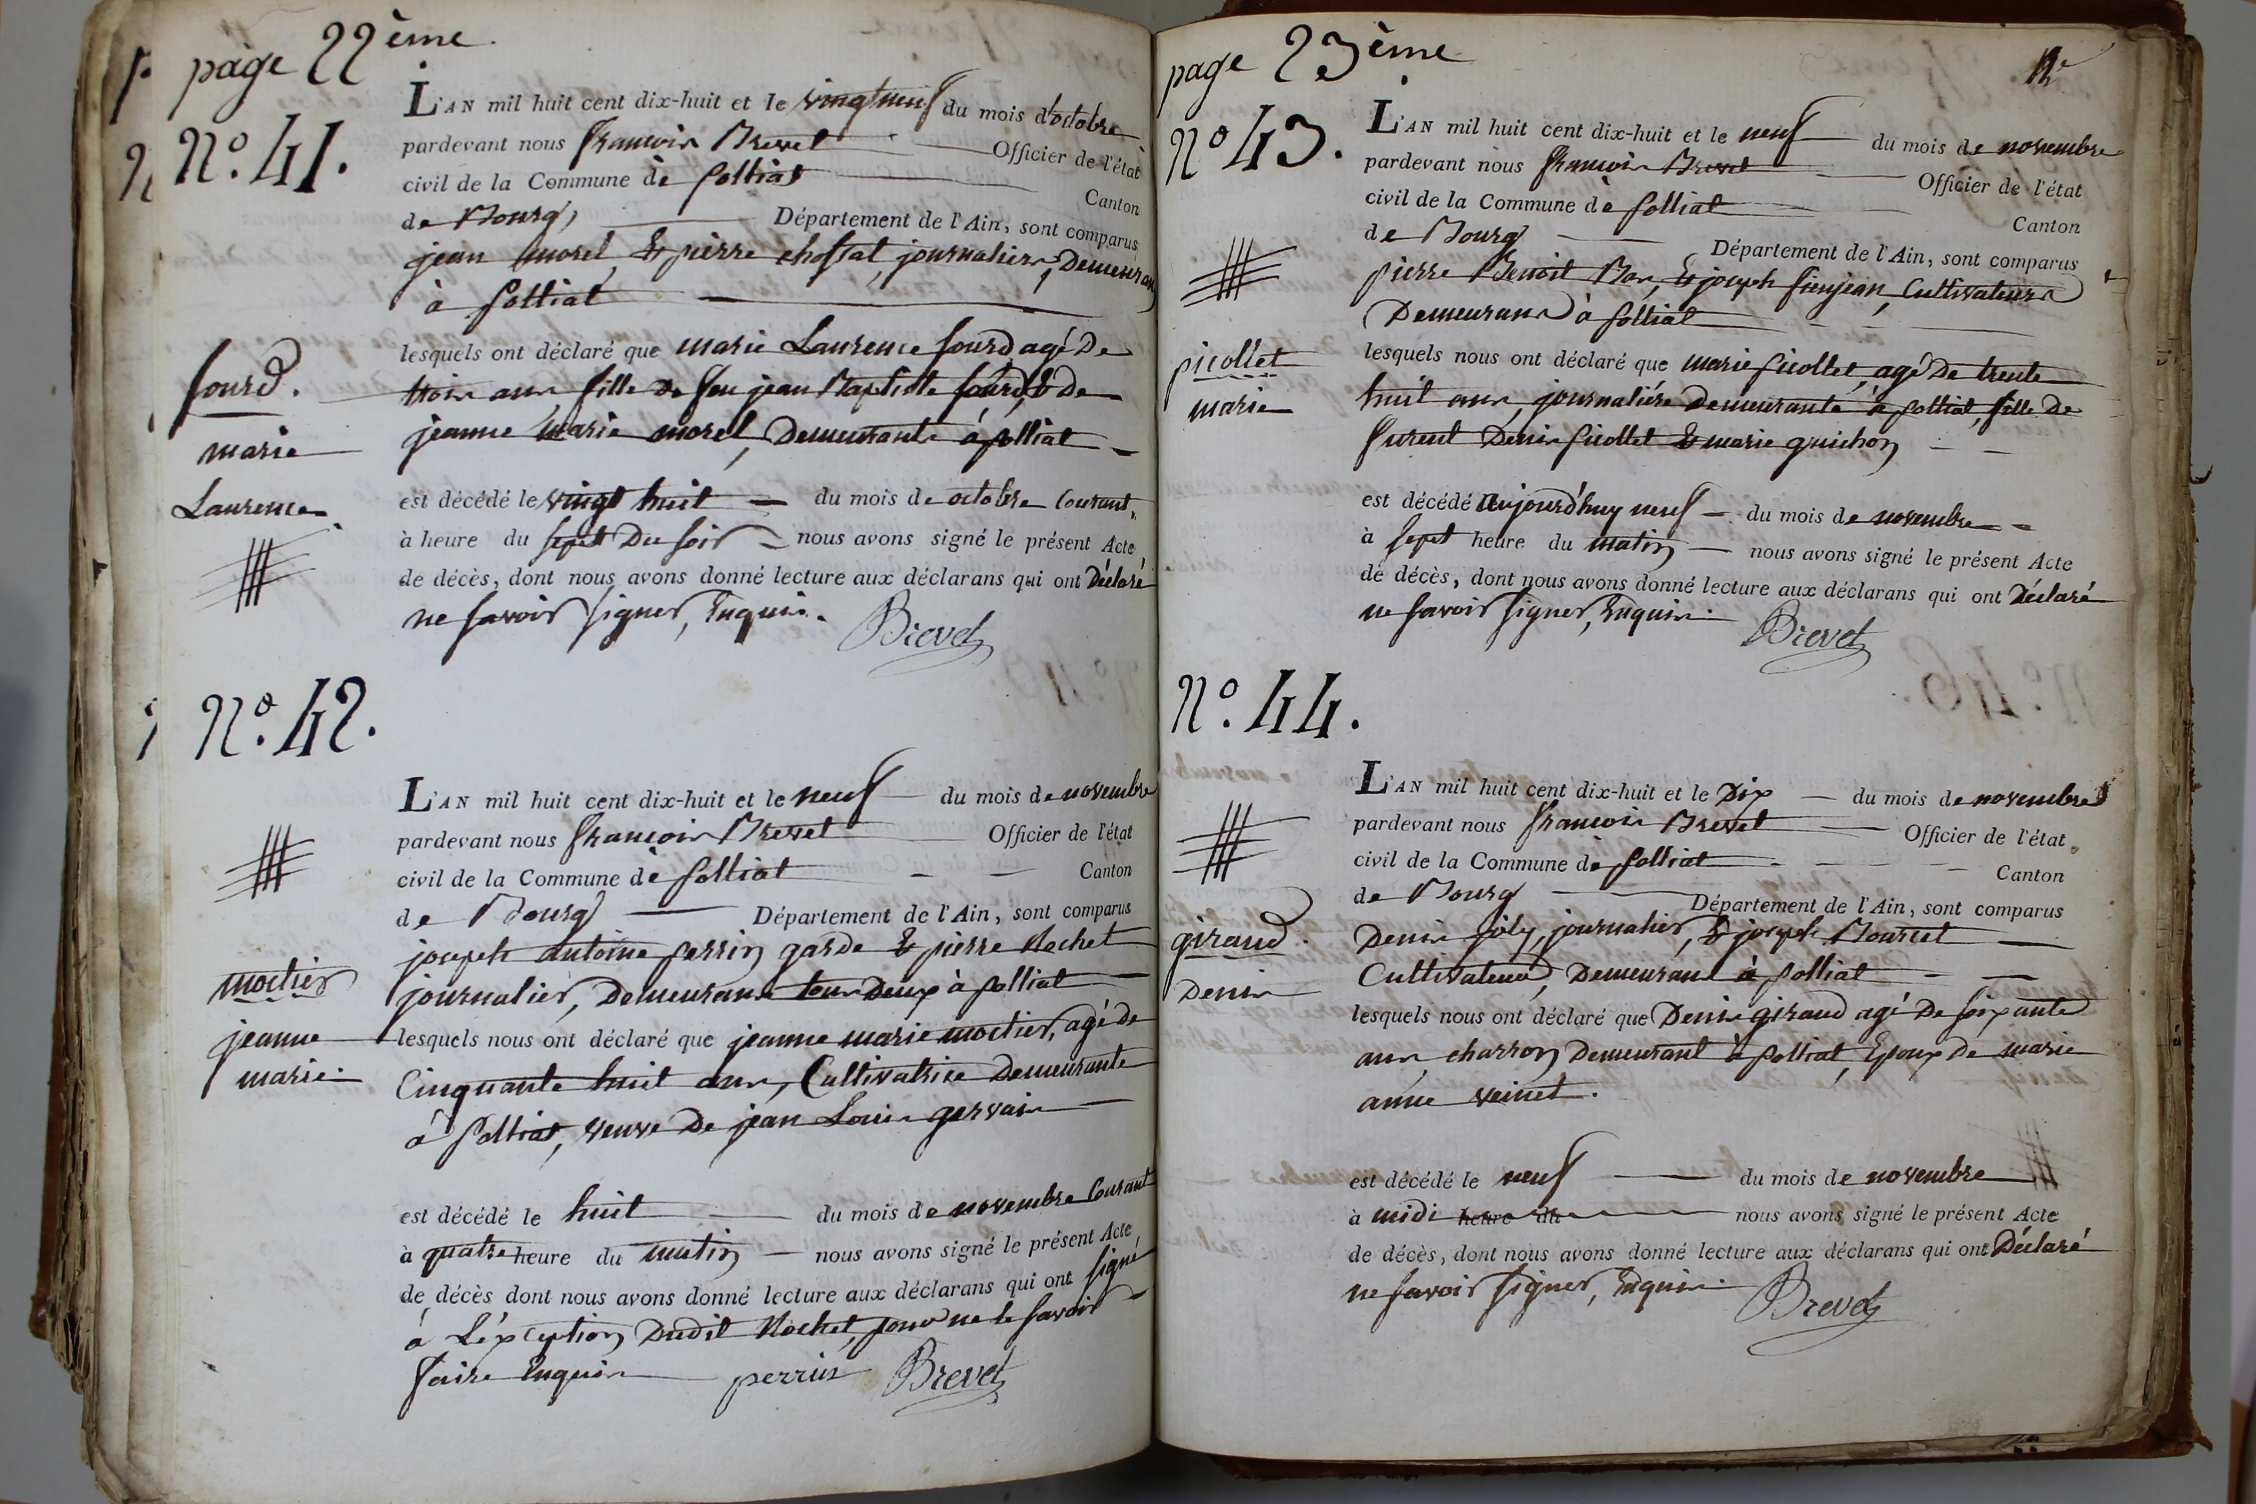 page 22ème
N.º 41.
L'AN mil huit cent dix-huit et le vingt neuf du mois d'octobre
pardevant nous françois Brevet Officier de l'état
civil de la Commune de polliat Canton
de Bourg, Département de l'Ain, sont comparus
jean morel, & pierre chossat, journaliers, Demeurans
à polliat
lesquels ont déclaré que marie Laurence sourd agé De
trois ans fille de feu jean Baptiste sourd, & de
jeanne marie morel, Demeurante á polliat
est décédé le vingt huit du mois de octobre Courant,
à heure du sept Du soir nous avons signé le présent Acte
de décès, dont nous avons donné lecture aux déclarans qui ont Déclaré
ne savoir signer, Enquis.
Brevet
sourd.
marie
Laurence
N.º 42.
L'AN mil huit cent dix-huit et le neuf du mois de novembre
pardevant nous françois Brevet Officier de l'état
civil de la Commune de polliat Canton
de Bourg Département de l'Ain, sont comparus
joseph antoine perrin garde & pierre Rochet
journalier, Demeurans tous Deux à polliat
lesquels nous ont déclaré que jeanne marie moctier, agé de
Cinquante huit ans, Cultivatrice Demeurante
á polliat, veuve De jean Louis gervais
est décédé le huit du mois de novembre Courant
à quatre heure du matin nous avons signé le présent Acte
de décès dont nous avons donné lecture aux déclarans qui ont signé
á L'éxception Dudit Rochet, pour ne le savoir
faire Enquis
perrin Brevet
moctier
jeanne
marie.
page 23ème
12e
Nº 43.
L'AN mil huit cent dix-huit et le neuf du mois de novembre
pardevant nous françois Brevet Officier de l'état
civil de la Commune de polliat Canton
de Bourg Département de l'Ain, sont comparus
pierre Benoit Bon, & joseph pinjean, Cultivateurs
Demeurans à polliat
lesquels nous ont déclaré que marie picollet, agé De trente
huit ans, journalière Demeurante à polliat, fille De
furent Denis picollet & marie guichon
est décédé aujourd'huy neuf du mois de novembre
à sept heure du matin nous avons signé le présent Acte
de décès, dont nous avons donné lecture aux déclarans qui ont Déclaré
ne savoir signer, Enquis.
Brevet
picollet
marie
N.º 44.
L'AN mil huit cent dix-huit et le Dix du mois de novembre
pardevant nous françois Brevet Officier de l'état
civil de la Commune de polliat Canton
de Bourg Département de l'Ain, sont comparus
Denis joly, journalier, & joseph Bourcet
Cultivateur, Demeurans à polliat
lesquels nous ont déclaré que Denis giraud agé De soixante
ans, charron Demeurant à polliat, Epoux De marie
anne veinet.
est décédé le neuf du mois de novembre
à midi heure du nous avons signé le présent Acte
de décès, dont nous avons donné lecture aux déclarans qui ont Déclaré
ne savoir signer, Enquis.
Brevet
giraud.
Denis